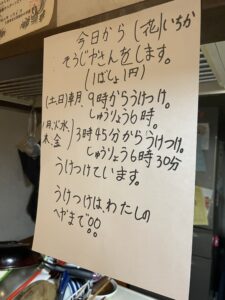 今日から(花)いちか
そうじやさんをします。
(1ばしょ1円)
(土日)朝9時からうけつけ。
しゅうりょう6時。
(月、火、水、木、金)3時45分からうけつけ。
しゅうりょう6時30分
うけつけています。
うけつけは、わたしの
へやまで!!